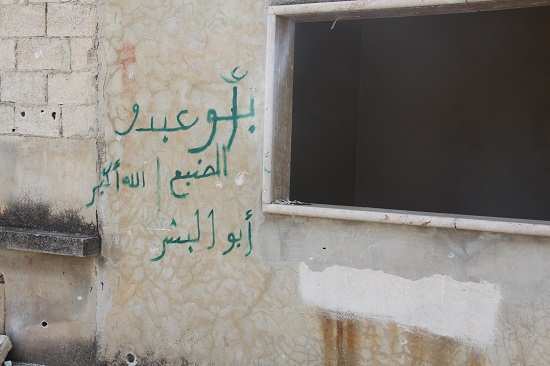 أبو عبدو
الضبع | الله أكبر
أبو البشر